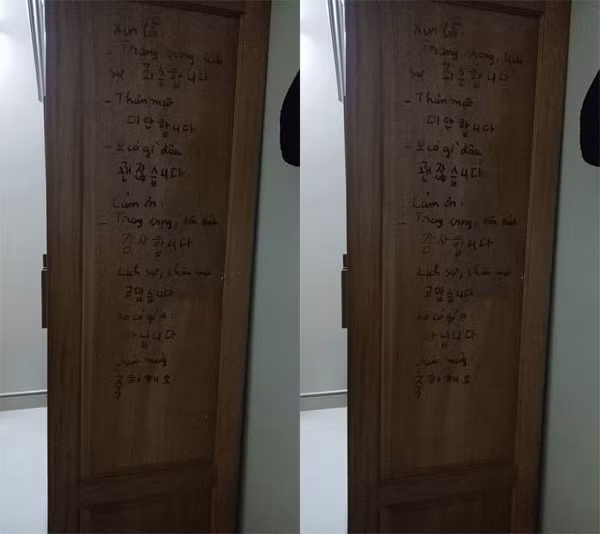 Xin lỗi:
- Trang trọng, lịch
sự 죄송합니다
- Thân mật
미안합니다
- Ko có gì đâu
괜찮습니다
Cảm ơn:
- Trang trọng,
감사합니다
Lịch sự, thân mật
고맙습니다
ko có gì ạ
아닙니다
chúc mừng
축하해요
Xin lỗi:
- Trang trọng, lịch
sự 죄송합니다
- Thân mật
미안합니다
- Ko có gì đâu
괜찮습니다
Cảm ơn:
- Trang trọng,
감사합니다
Lịch sự, thân mật
고맙습니다
ko có gì ạ
아닙니다
chúc mừng
축하해요